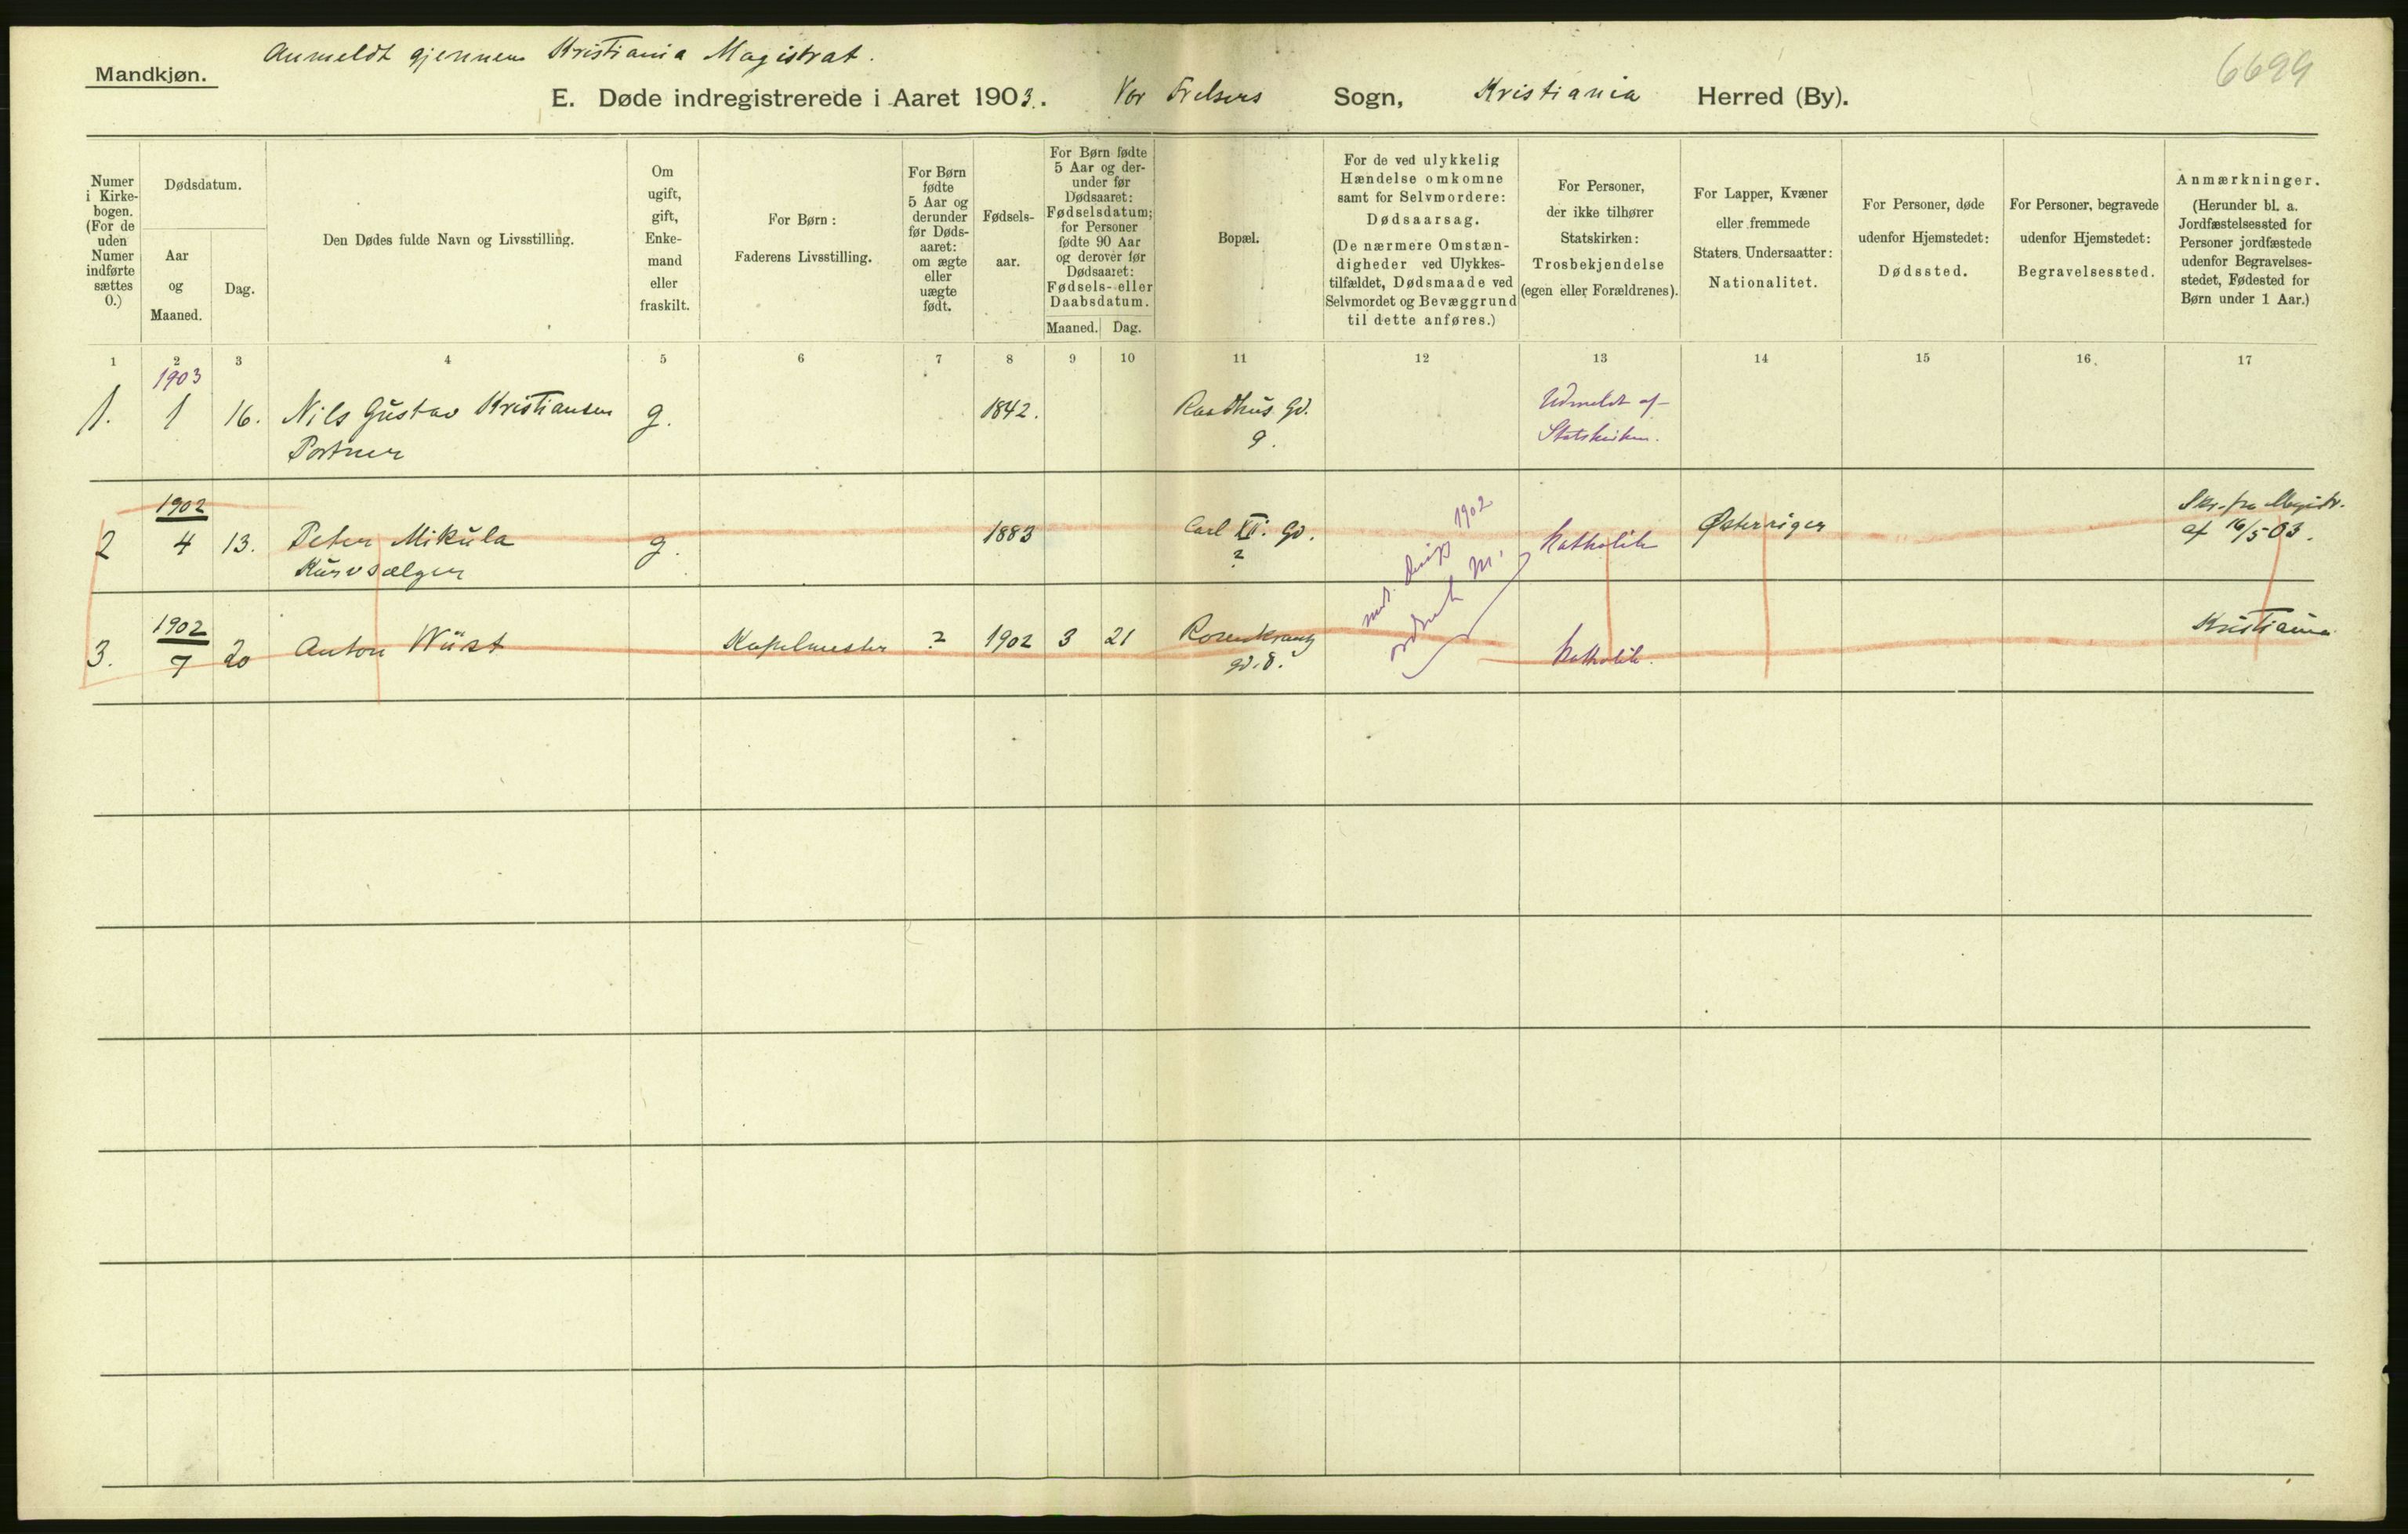 Anmeldt gjennem Kristiania Magistrat.
6699
Mandkjøn.
E. Døde indregistrerede i Aaret 1903. Vor Frelsers Sogn, Kristiania Herred (By).
Numer
i Kirke-
bogen.
(For de
uden
Numer
indførte
sættes
0.)
Dødsdatum.
Aar
og
Maaned.
Dag.
Den Dødes fulde Navn og Livsstilling.
Om
ugift,
gift,
Enke-
mand
eller
fraskilt.
For Børn:
Faderens Livsstilling.
For Børn
fødte
5 Aar og
derunder
før Døds-
aaret:
om ægte
eller
uægte
født.
Fødsels-
aar.
For Børn fødte
5 Aar og der-
under før
Dødsaaret:
Fødselsdatum;
for Personer
fødte 90 Aar
og derover før
Dødsaaret:
Fødsels- eller
Daabsdatum.
Maaned. Dag.
Bopæl.
For de ved ulykkelig
Hændelse omkomne
samt for Selvmordere:
Dødsaarsag.
(De nærmere Omstæn-
digheder ved Ulykkes-
tilfældet, Dødsmaade ved
Selvmordet og Bevæggrund
til dette anføres.)
For Personer,
der ikke tilhører
Statskirken:
Trosbekjendelse
(egen eller Forældrenes).
For Lapper, Kvæner
eller fremmede
Staters Undersaatter:
Nationalitet.
For Personer, døde
udenfor Hjemstedet:
Dødssted.
For Personer, begravede
udenfor Hjemstedet:
Begravelsessted.
Anmærkninger.
(Herunder bl. a.
Jordfæstelsessted for
Personer jordfæstede
udenfor Begravelses-
stedet, Fødested for
Børn under 1 Aar.)
1 2 3 4 5 6 7 8 9 10 11 12 13 14 15 16 17
1903
1. 1 16. Nils Gustav Kristiansen g. 1842. Raadhus Gd. Udmeldt af
Portner 9. Statskirken.
1902
2 4 13. Peter Mikula g. 1883 Carl XII. Gd. Katholik Østerriger Skr. fra Magistr.
Kurvsælger 2 af 16/5 03.
1902
1902
3. 7 20 Anton Wüst Kapelmester ? 1902 3 21 Rosenkrantz Katholik. Kristiania
gd. 8.